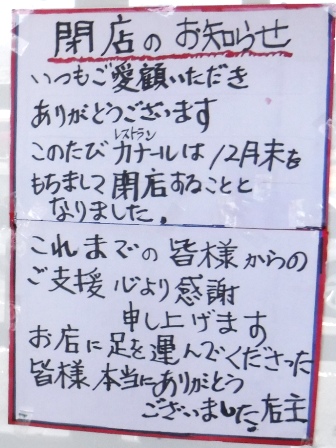 閉店のお知らせ
いつもご愛顧いただき
ありがとうございます
レストラン
このたびカナールは12月末を
もちまして閉店することと
なりました。
これまでの皆様からの
ご支援心より感謝
申し上げます
お店に足を運んでくださった
皆様本当にありがとう
ございました。店主